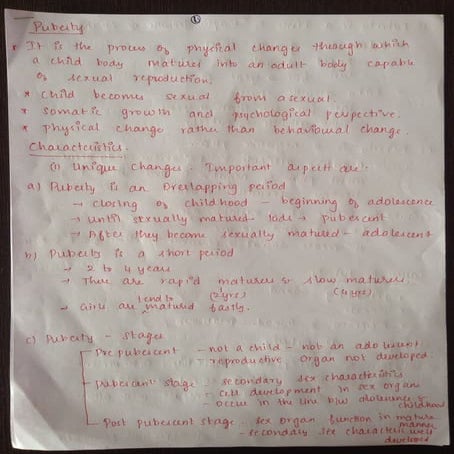 ①
Puberty
* It is the process of physical changes through which
a child body matures into an adult body capable
of sexual reproduction.
* Child becomes sexual from asexual.
* Somatic growth and psychological perspective.
* Physical change rather than behavioural change.
Characteristics.
(i) Unique changes. Important aspect are:
a) Puberty is an Overlapping period
→ closing of childhood - beginning of adolescence
→ Until sexually matured - → Pubescent
→ After they become sexually matured - adolescent
b) Puberty is a short period
→ 2 to 4 years
→ There are rapid matures & slow matures.
(2 yrs) (4 yrs)
→ Girls are tend to matured fastly.
c) Puberty - stages
Pre pubescent - not a child - not an
- reproductive organ not developed.
Pubescent stage - secondary sex characteristics
- cell development in sex organs
- occur in the line b/w & childhood
Post pubescent stage - sex organ function in mature manner
- secondary sex well developed